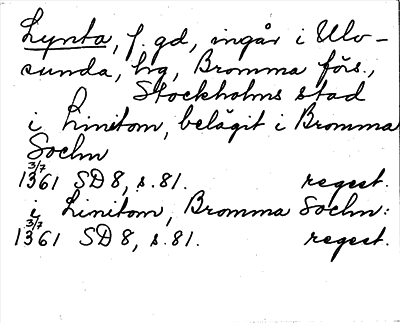 Lynta, f. gd, ingår i Ulv-
sunda, hg, Bromma förs.,
Stockholms stad
i Linitom, belägit i Bromma
Sochn
3/7
1361 SD 8, s. 81. regest.
i Linitom, Bromma Sochn:
3/7
1361 SD 8, s. 81. regest.